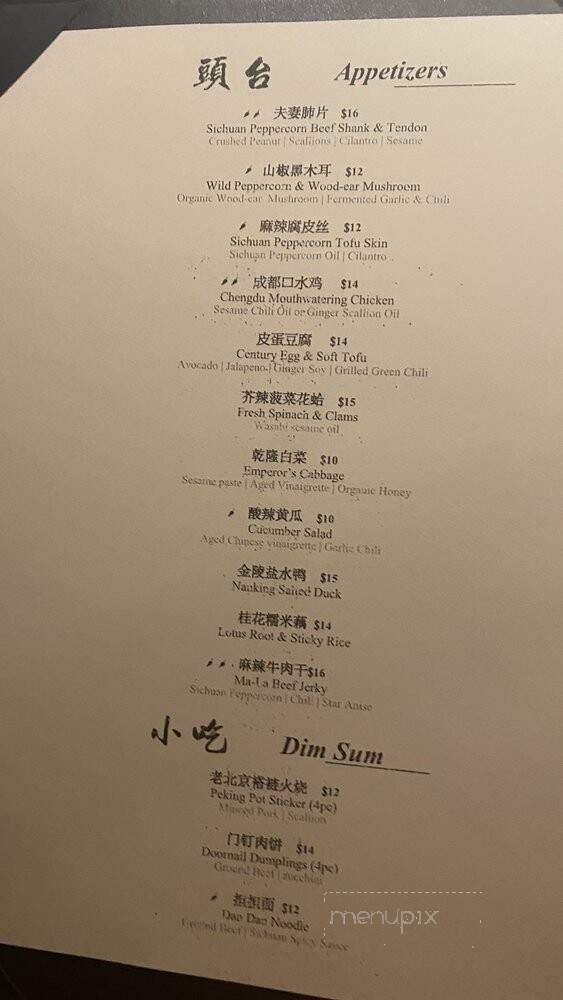 頭台 Appetizers
夫妻肺片 $16
Sichuan Peppercorn Beef Shank & Tendon
Crushed Peanut | Scallions | Cilantro | Sesame
山椒黑木耳 $12
Wild Peppercorn & Wood-ear Mushroom
Organic Wood-ear Mushroom | Fermented Garlic & Chili
麻辣腐皮丝 $12
Sichuan Peppercorn Tofu Skin
Sichuan Peppercorn Oil | Cilantro
成都口水鸡 $14
Chengdu Mouthwatering Chicken
Sesame Chili Oil or Ginger Scallion Oil
皮蛋豆腐 $14
Century Egg & Soft Tofu
Avocado | Jalapeno | Ginger Soy | Grilled Green Chili
芥辣菠菜花蛤 $15
Fresh Spinach & Clams
Wasabi sesame oil
乾隆白菜 $10
Emperor's Cabbage
Sesame paste | Aged Vinaigrette | Organic Honey
酸辣黄瓜 $10
Cucumber Salad
Aged Chinese vinaigrette | Garlic Chili
金陵盐水鸭 $15
Nanking Salted Duck
桂花糯米藕 $14
Lotus Root & Sticky Rice
麻辣牛肉干$16
Ma-La Beef Jerky
Sichuan Peppercorn | Chili | Star Anise
小吃 Dim Sum
老北京褡裢火烧 $12
Peking Pot Sticker (4pc)
Minced Pork | Scallion
门钉肉饼 $14
Doornail Dumplings (4pc)
Ground Beef | zucchini
担担面 $12
Dan Dan Noodle
Ground Beef | Sichuan Spicy Sauce
menupix